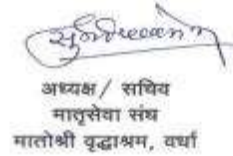 अध्यक्ष/ सचिव
मातृसेवा संघ
मातोश्री वृद्धाश्रम, वर्धा